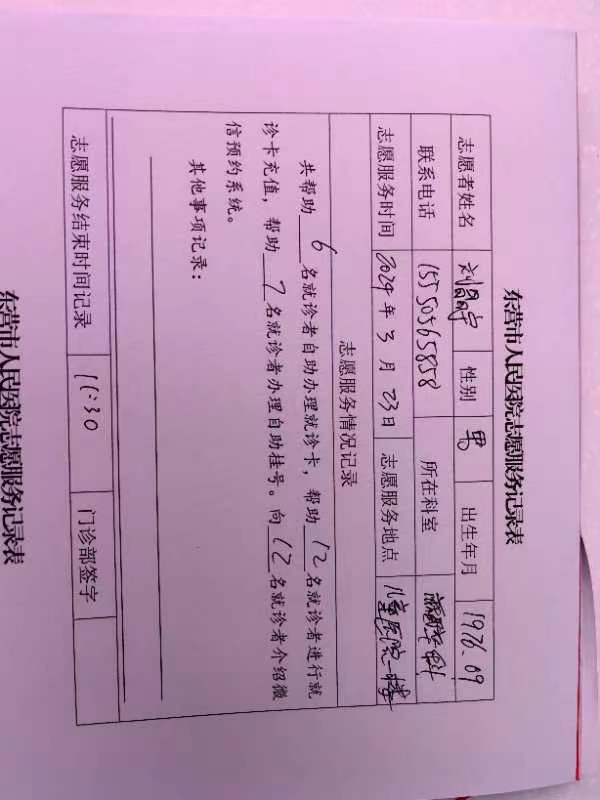 东营市人民医院志愿服务记录表
志愿者姓名 刘 宇 性别 男 出生年月 1976.09
联系电话 15550565858 所在科室 科
志愿服务时间 2024年3月23日 志愿服务地点 儿童医院一楼
志愿服务情况记录
共帮助 6 名就诊者自助办理就诊卡，帮助 12 名就诊者进行就
诊卡充值，帮助 7 名就诊者办理自助挂号。向 12 名就诊者介绍微
信预约系统。
其他事项记录：
志愿服务结束时间记录 11:30 门诊部签字
东营市人民医院志愿服务记录表